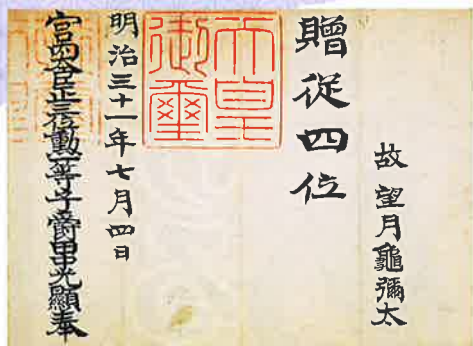 故 望月龜彌太
贈從四位
天皇
御璽
明治三十一年七月四日
宮内大臣正三位勳一等子爵田中光顯奉